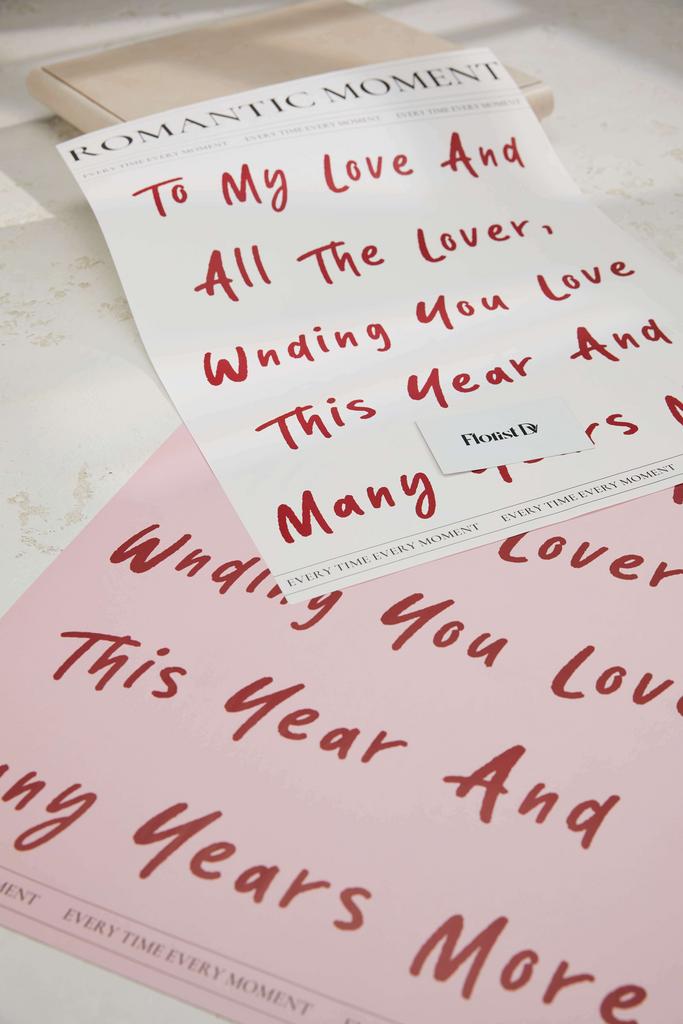 ROMANTIC MOMENT
EVERY TIME EVERY MOMENT EVERY TIME EVERY MOMENT EVERY TIME EVERY MOMENT
To My Love And
All The Lover,
Wnding You Love
This Year And
Florist Dy
Many Years
EVERY TIME EVERY MOMENT EVERY TIME EVERY MOMENT
Lover
Wnding You Love
This Year And
Many Years More
EVERY TIME EVERY MOMENT